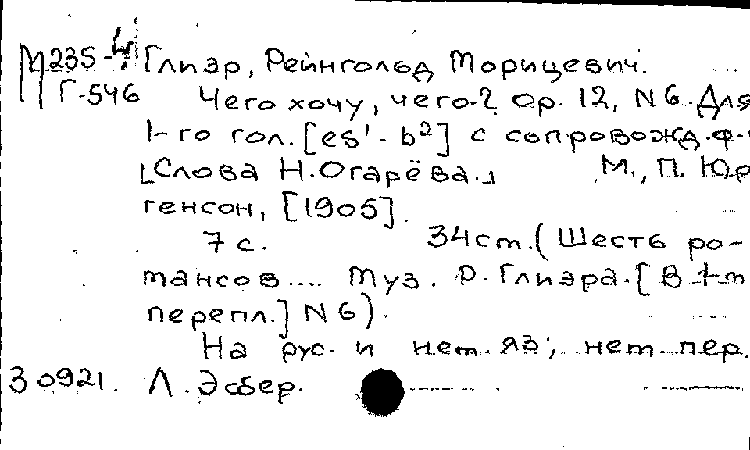 М 235-4 Глиэр, Рейнгольд Морицевич.
Г-546 Чего хочу, чего?. Op. 12, N 6. Для
1-го гол. [es¹ - b²] с сопровожд. ф-
[Слова Н. Огарёва.] М., П. Юр
генсон, [1905].
7 с. 34 cm. (Шесть ро-
мансов.... Муз. Р. Глиэра. [В 1-m
перепл.] N 6).
На рус. и нет. яз; нет. пер.
30921. Л. Эсбер.